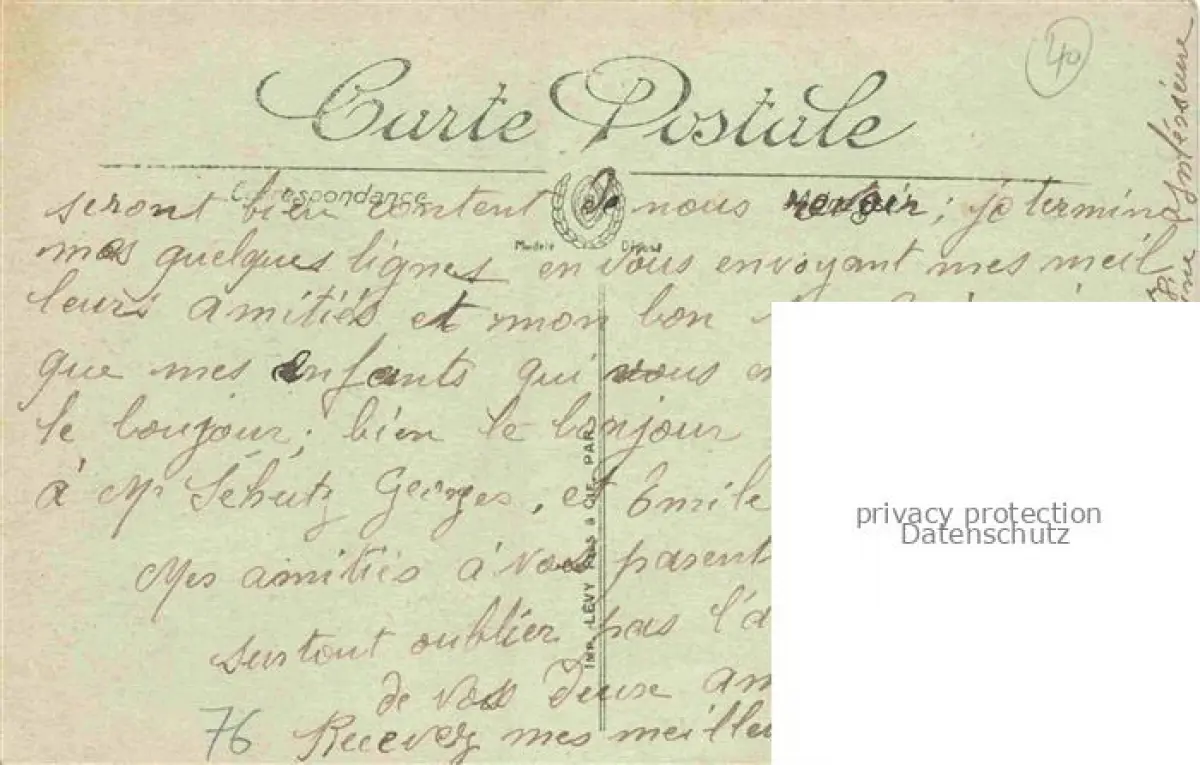 40
Carte Postale
Correspondance
Modèle Déposé
seront bien content de nous revoir; je termine
mes quelques lignes en vous envoyant mes meil
leurs amitiés et mon bon
que mes enfants qui vous
le bonjour; bien le bonjour
à Mr Schutz Georges, et Émile
Mes amitiés à vos parents
surtout oublier pas l'a
de vos deux am
76 Recevez mes meilleu
IMP. LEVY FILS & CIE. PAR
Inférieure
privacy protection
Datenschutz